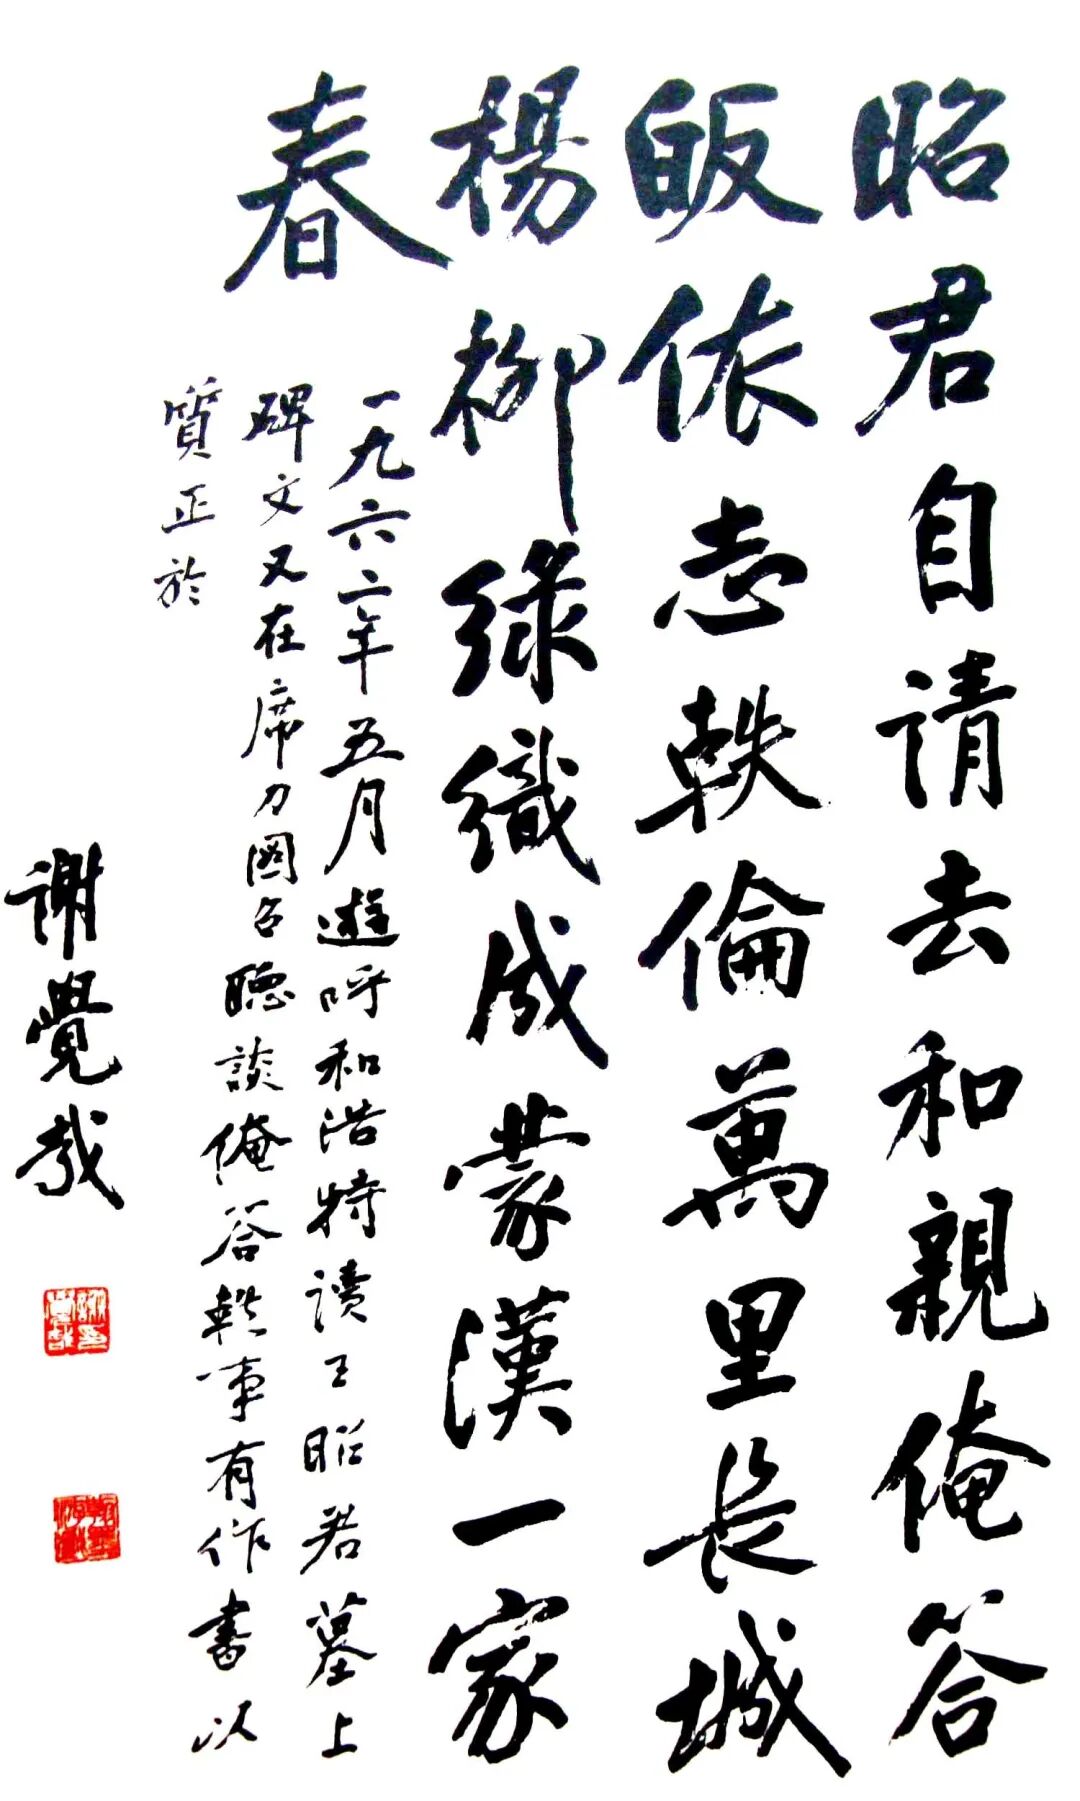 昭君自請去和親俺答
皈依志軼倫萬里長城
楊柳綠織成蒙漢一家
春
一九六二年五月遊呼和浩特讀王昭君墓上
碑文又在席力圖召聽談俺答軼事有作書以
質正於
謝覺哉